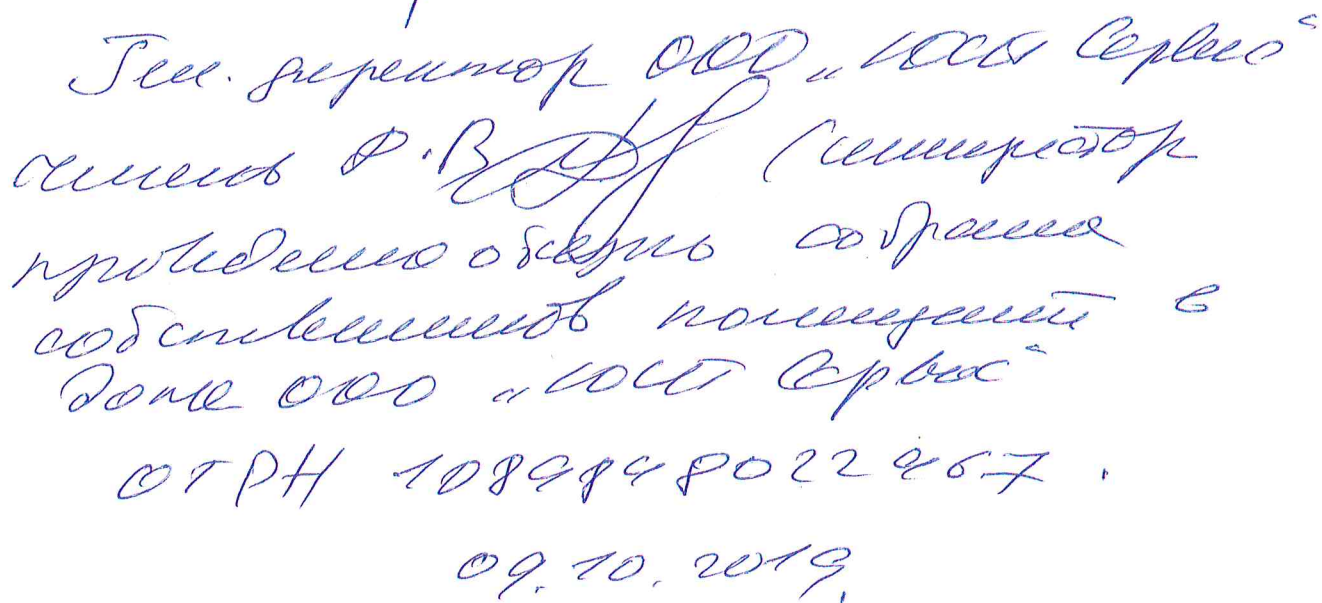 Ген. директор ООО „ЮСТ Сервис“
Р.В. (инициатор
проведения общего собрания
собственников помещений в
доме ООО „ЮСТ Сервис“
ОГРН 1089848022467.
09.10.2019.